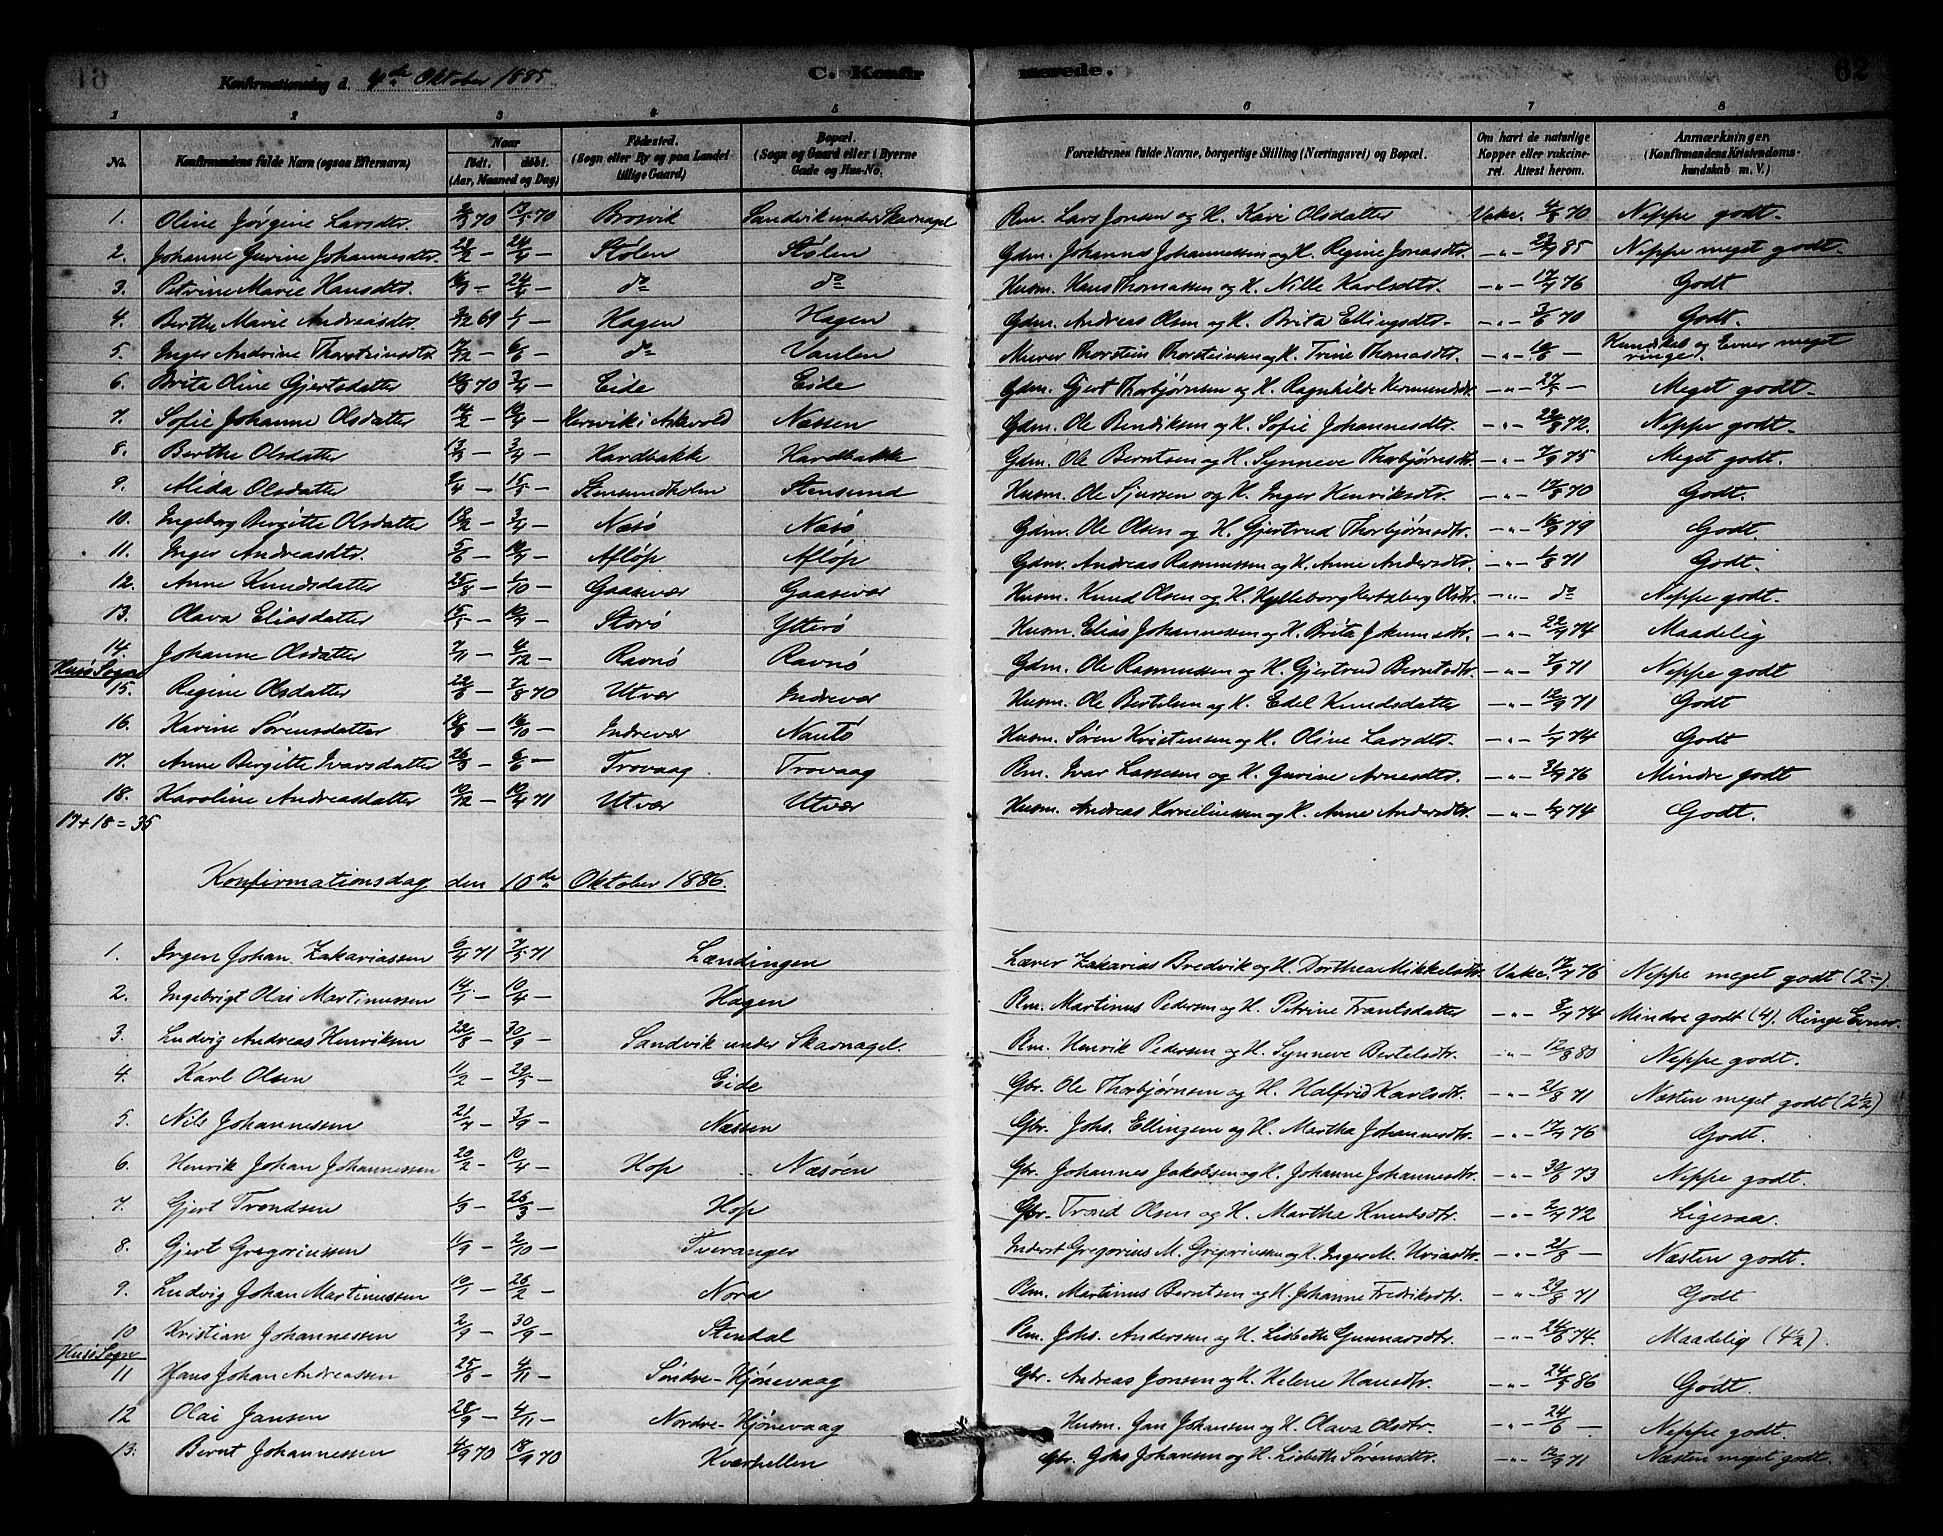 61
Konfirmationsdag d. 4de Oktober 1885
C. Konfirmerede.
62
1 2 3 4 5 6 7 8
No. | Konfirmandens fulde Navn (ogsaa Efternavn) | Naar født. døbt. (Aar, Maaned og Dag) | Fødested. (Sogn eller By og paa Landet tillige Gaard) | Bopæl. (Sogn og Gaard eller i Byerne Gade og Hus-No. | Forældrenes fulde Navne, borgerlige Stilling (Næringsvei) og Bopæl. | Om havt de naturlige Kopper eller vakcineret. Attest herom. | Anmærkninger. (Konfirmandens Kristendomskundskab m. V.)
1. Oline Jørgine Larsdtr. 70 70 Brosvik Sandvik under Skavnagel Rm. Lars Jonsen og H. Kari Olsdatter Vakc. 4/8 70 Neppe godt.
2. Johanne Gurine Johannesdtr. 22/2 — 24/4 — Stølen Stølen Gdm. Johannes Johannessen og H. Regine Jonasdtr. —"— 85 Neppe meget godt.
3. Petrine Marie Hansdtr. — 24/4 — do do Husm. Hans Thomassen og H. Nille Karlsdtr. —"— 76 Godt
4. Berthe Marie Andreasdtr. 69 — Hagen Hagen Gdm. Andreas Olsen og H. Brita Ellingsdtr. —"— 70 Godt.
5. Inger Andrine Thorsteinsdtr. — — do Vaulen Murer Thorstein Thorsteinsen og H. Trine Thomasdtr. —"— — Kundskab og Evner meget ringe.
6. Brita Oline Gjertsdatter 70 3/4 — Eide Eide Gdm. Gjert Thorbjørnsen og H. Ragnhilde —"— — Meget godt.
7. Sofie Johanne Olsdatter — 10/4 — Herevik i Askvold Næssen Gdm. Ole Bendiksen og H. Sofie Johannesdtr. —"— 72. Neppe godt.
8. Berthe Olsdatter 13/3 — 3/4 — Hardbakke Hardbakke Gdm. Ole Berntsen og H. Synneve Thorbjørnsdtr. —"— 7/9 75 Meget godt.
9. Alida Olsdatter — 15/5 — Stensundholm Stensund Husm. Ole Sjursen og H. Inger Henriksdtr. —"— 70 Godt.
10. Ingeborg Birgitte Olsdatter — 3/4 — Næsø Næsø Gdm. Ole Olsen og H. Gjertrud Thorbjørnsdtr. —"— 79 Godt.
11. Inger Andreasdtr. — — Afløp Afløp Gdm. Andreas Rasmussen og H. Anne Andersdtr. —"— 71 Godt.
12. Anne Knudsdatter — — Gaasevær Gaasevær Husm. Knud Olsen og H. Olsdtr. —"— do Neppe godt.
13. Olava Eliasdatter — — Storø Ytterø Husm. Elias Johannessen og H. Brita —"— 74 Maadelig
14. Johanne Olsdatter — — Ravnø Ravnø Gdm. Ole Rasmussen og H. Gjertrud Berntsdtr. —"— 7/9 71 Neppe godt
Husø Sogn
15. Regine Olsdatter — 70 Utvær Indrevær Husm. Ole Bertelsen og H. Edel Knudsdatter —"— 71 Godt
16. Karine Sørensdatter — — Indrevær Nautø Husm. Søren Kristensen og H. Oline Larsdtr. —"— 74 Godt
17. Anne Birgitte Ivarsdatter — — Trovaag Trovaag Rm. Ivar Lassesen og H. Gurine Arnesdtr. —"— 76 Mindre godt
18. Karoline Andreasdatter — 71 Utvær Utvær Husm. Andreas Korneliussen og H. Anne Andersdtr. —"— 74 Godt.
17 + 18 = 35
Konfirmationsdag den 10de Oktober 1886.
1. Jrgen Johan Zakariassen 71 7/5 71 Lændingen Lærer Zakarias Bredvik og H. Dorthea Mikkelsdtr. Vakc. 76 Neppe meget godt (2÷)
2. Ingebrigt Olai Martinussen 14/1 — 10/4 — Hagen Rm. Martinus Pedersen og H. Petrine Frantsdatter —"— 74 Mindre godt (4). Ringe Evner.
3. Ludvig Andreas Henriksen 22/8 — 30/9 — Sandvik under Skavnagel. Rm. Henrik Pedersen og H. Synneve Bertelsdtr. —"— 12/8 80 Neppe godt.
4. Karl Olsen 11/2 — 29/5 — Eide Gbr. Ole Thorbjørnsen og H. Halfrid Karlsdtr. —"— 21/8 71 Næsten meget godt (2½)
5. Nils Johannessen 21/4 — 3/9 — Næssen Gbr. Johs. Ellingsen og H. Martha Johannesdtr. —"— 76 Godt.
6. Henrik Johan Johannessen 20/2 — 10/4 — Hop " Næsøen Gbr. Johannes Jakobsen og H. Johanne Johannesdtr. —"— 73 Neppe godt.
7. Gjert Trondsen — 26/3 — Hop Gbr. Trond Olsen og H. Martha Knudsdtr. —"— 72 Ligesaa.
8. Gjert Gregoriussen 11/9 — 2/10 — Tveranger Inderst Gregorius M. Gregoriussen og H. Inger M. —"— 21/8 — Næsten godt.
9. Ludvig Johan Martinussen 10/1 — 26/2 — Nora Rm. Martinus Berntsen og H. Johanne Fredriksdtr. —"— 29/8 71 Godt
10 Kristian Johannessen 2/9 — 30/9 — Stendal Rm. Johs. Andersen og H. Lisbeth Gunnarsdtr. —"— 24/6 74. Maadelig (4½).
Husø Sogn
11 Hans Johan Andreassen 25/6 — 4/11 — Søndre-Hjønevaag Gbr. Andreas Jonsen og H. Helene Hansdtr. —"— 24/5 86 Godt.
12 Olai Jansen 28/9 — 4/11 — Nordre-Hjønevaag Husm. Jan Johansen og H. Olava Olsdtr. —"— 24/6 — Neppe godt.
13. Bernt Johannessen 4/9 70 18/9 70 Kværhellen Gbr. Johs Johansen og H. Lisbeth Sørensdtr. —"— 12/9 71 Næsten meget godt.